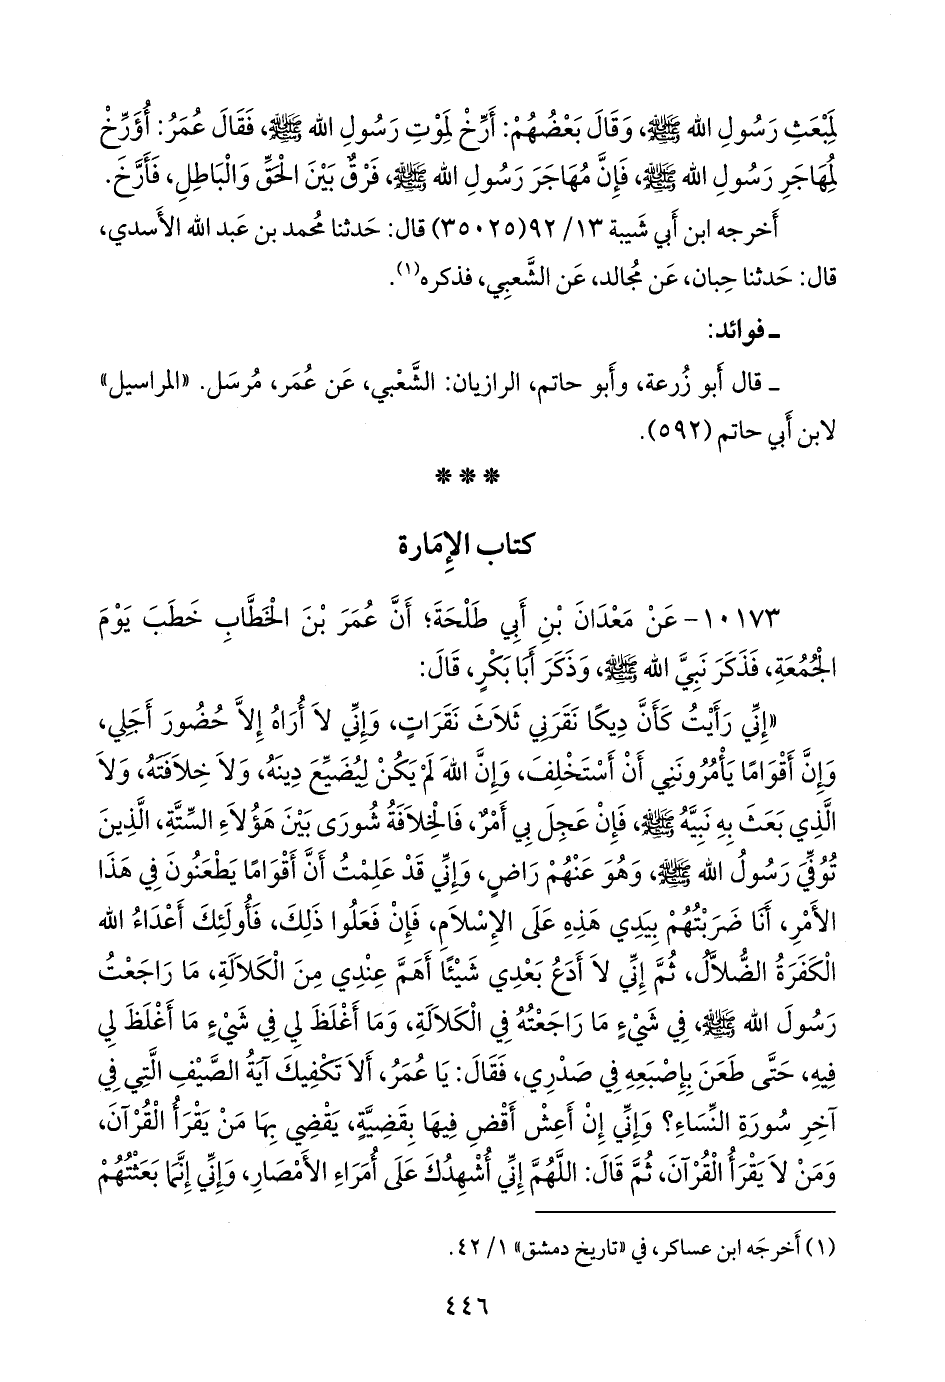 لِمَبْعَثِ رَسُولِ الله ﷺ، وَقَالَ بَعْضُهُمْ: أَرِّخْ لِمَوْتِ رَسُولِ الله ﷺ، فَقَالَ عُمَرُ: أُؤَرِّخْ
لِمُهَاجَرِ رَسُولِ الله ﷺ، فَإِنَّ مُهَاجَرَ رَسُولِ الله ﷺ، فَرْقٌ بَيْنَ الْحَقِّ وَالْبَاطِلِ، فَأَرَّخَ.
أَخرجه ابن أَبي شَيبة ١٣/ ٩٢(٣٥٠٢٥) قال: حَدثنا مُحمد بن عَبد الله الأَسدي،
قال: حَدثنا حِبان، عَن مُجالد، عَن الشَّعبِي، فذكره(١).
ـ فوائد:
ـ قال أَبو زُرعة، وأَبو حاتم، الرازيان: الشَّعْبي، عَن عُمَر، مُرسَل. «المراسيل»
لابن أَبي حاتم (٥٩٢).
***
كتاب الإِمَارة
١٠١٧٣- عَنْ مَعْدَانَ بْنِ أَبِي طَلْحَةَ؛ أَنَّ عُمَرَ بْنَ الْخَطَّابِ خَطَبَ يَوْمَ
الْجُمُعَةِ، فَذَكَرَ نَبِيَّ الله ﷺ، وَذَكَرَ أَبَا بَكْرٍ، قَالَ:
«إِنِّي رَأَيْتُ كَأَنَّ دِيكًا نَقَرَنِي ثَلَاثَ نَقَرَاتٍ، وَإِنِّي لاَ أُرَاهُ إِلاَّ حُضُورَ أَجَلِي،
وَإِنَّ أَقْوَامًا يَأْمُرُونَنِي أَنْ أَسْتَخْلِفَ، وَإِنَّ اللهَ لَمْ يَكُنْ لِيُضَيِّعَ دِينَهُ، وَلاَ خِلاَفَتَهُ، وَلاَ
الَّذِي بَعَثَ بِهِ نَبِيَّهُ ﷺ، فَإِنْ عَجِلَ بِي أَمْرٌ، فَالْخِلاَفَةُ شُورَى بَيْنَ هَؤُلاَءِ السِّتَّةِ، الَّذِينَ
تُوُفِّيَ رَسُولُ الله ﷺ، وَهُوَ عَنْهُمْ رَاضٍ، وَإِنِّي قَدْ عَلِمْتُ أَنَّ أَقْوَامًا يَطْعَنُونَ فِي هَذَا
الأَمْرِ، أَنَا ضَرَبْتُهُمْ بِيَدِي هَذِهِ عَلَى الإِسْلاَمِ، فَإِنْ فَعَلُوا ذَلِكَ، فَأُولَئِكَ أَعْدَاءُ الله
الْكَفَرَةُ الضُّلاَّلُ، ثُمَّ إِنِّي لاَ أَدَعُ بَعْدِي شَيْئًا أَهَمَّ عِنْدِي مِنَ الْكَلاَلَةِ، مَا رَاجَعْتُ
رَسُولَ الله ﷺ، فِي شَيْءٍ مَا رَاجَعْتُهُ فِي الْكَلاَلَةِ، وَمَا أَغْلَظَ لِي فِي شَيْءٍ مَا أَغْلَظَ لِي
فِيهِ، حَتَّى طَعَنَ بِإِصْبَعِهِ فِي صَدْرِي، فَقَالَ: يَا عُمَرُ، أَلاَ تَكْفِيكَ آيَةُ الصَّيْفِ الَّتِي فِي
آخِرِ سُورَةِ النِّسَاءِ؟ وَإِنِّي إِنْ أَعِشْ أَقْضِ فِيهَا بِقَضِيَّةٍ، يَقْضِي بِهَا مَنْ يَقْرَأُ الْقُرْآنَ،
وَمَنْ لاَ يَقْرَأُ الْقُرْآنَ، ثُمَّ قَالَ: اللَّهُمَّ إِنِّي أُشْهِدُكَ عَلَى أُمَرَاءِ الأَمْصَارِ، وَإِنِّي إِنَّمَا بَعَثْتُهُمْ
(١) أَخرجَه ابن عساكر، في «تاريخ دمشق» ١/ ٤٢.
٤٤٦